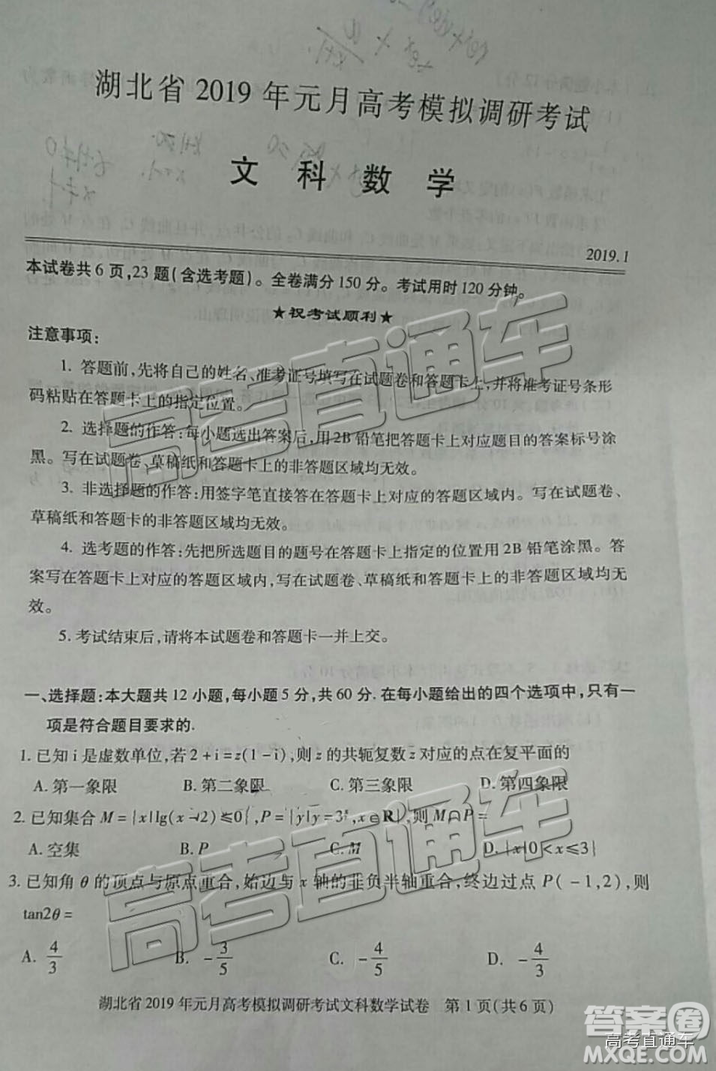 湖北省 2019 年元月高考模拟调研考试
文 科 数 学
2019.1
本试卷共 6 页,23 题(含选考题)。全卷满分 150 分。考试用时 120 分钟。
★祝考试顺利★
注意事项:
1. 答题前,先将自己的姓名、准考证号填写在试题卷和答题卡上,并将准考证号条形
码粘贴在答题卡上的指定位置。
2. 选择题的作答:每小题选出答案后,用 2B 铅笔把答题卡上对应题目的答案标号涂
黑。写在试题卷、草稿纸和答题卡上的非答题区域均无效。
3. 非选择题的作答:用签字笔直接答在答题卡上对应的答题区域内。写在试题卷、
草稿纸和答题卡的非答题区域均无效。
4. 选考题的作答:先把所选题目的题号在答题卡上指定的位置用 2B 铅笔涂黑。答
案写在答题卡上对应的答题区域内,写在试题卷、草稿纸和答题卡上的非答题区域均无
效。
5. 考试结束后,请将本试题卷和答题卡一并上交。
一、选择题:本大题共 12 小题,每小题 5 分,共 60 分. 在每小题给出的四个选项中,只有一
项是符合题目要求的.
1. 已知 i 是虚数单位,若 2 + i = z(1 - i),则 z 的共轭复数 z 对应的点在复平面的
A. 第一象限 B. 第二象限 C. 第三象限 D. 第四象限
2. 已知集合 M = {x|lg(x - 2) ≤ 0}, P = {y|y = 3ˣ, x ∈ R}, 则 M∩P =
A. 空集 B. P C. M D. {x|0 < x ≤ 3}
3. 已知角 θ 的顶点与原点重合,始边与 x 轴的非负半轴重合,终边过点 P( - 1,2),则
tan2θ =
A. 4/3 B. - 3/5 C. - 4/5 D. - 4/3
湖北省 2019 年元月高考模拟调研考试文科数学试卷 第 1 页(共 6 页)
高考直通车
高考直通车
答案圈
高考直通车
MXQE.COM